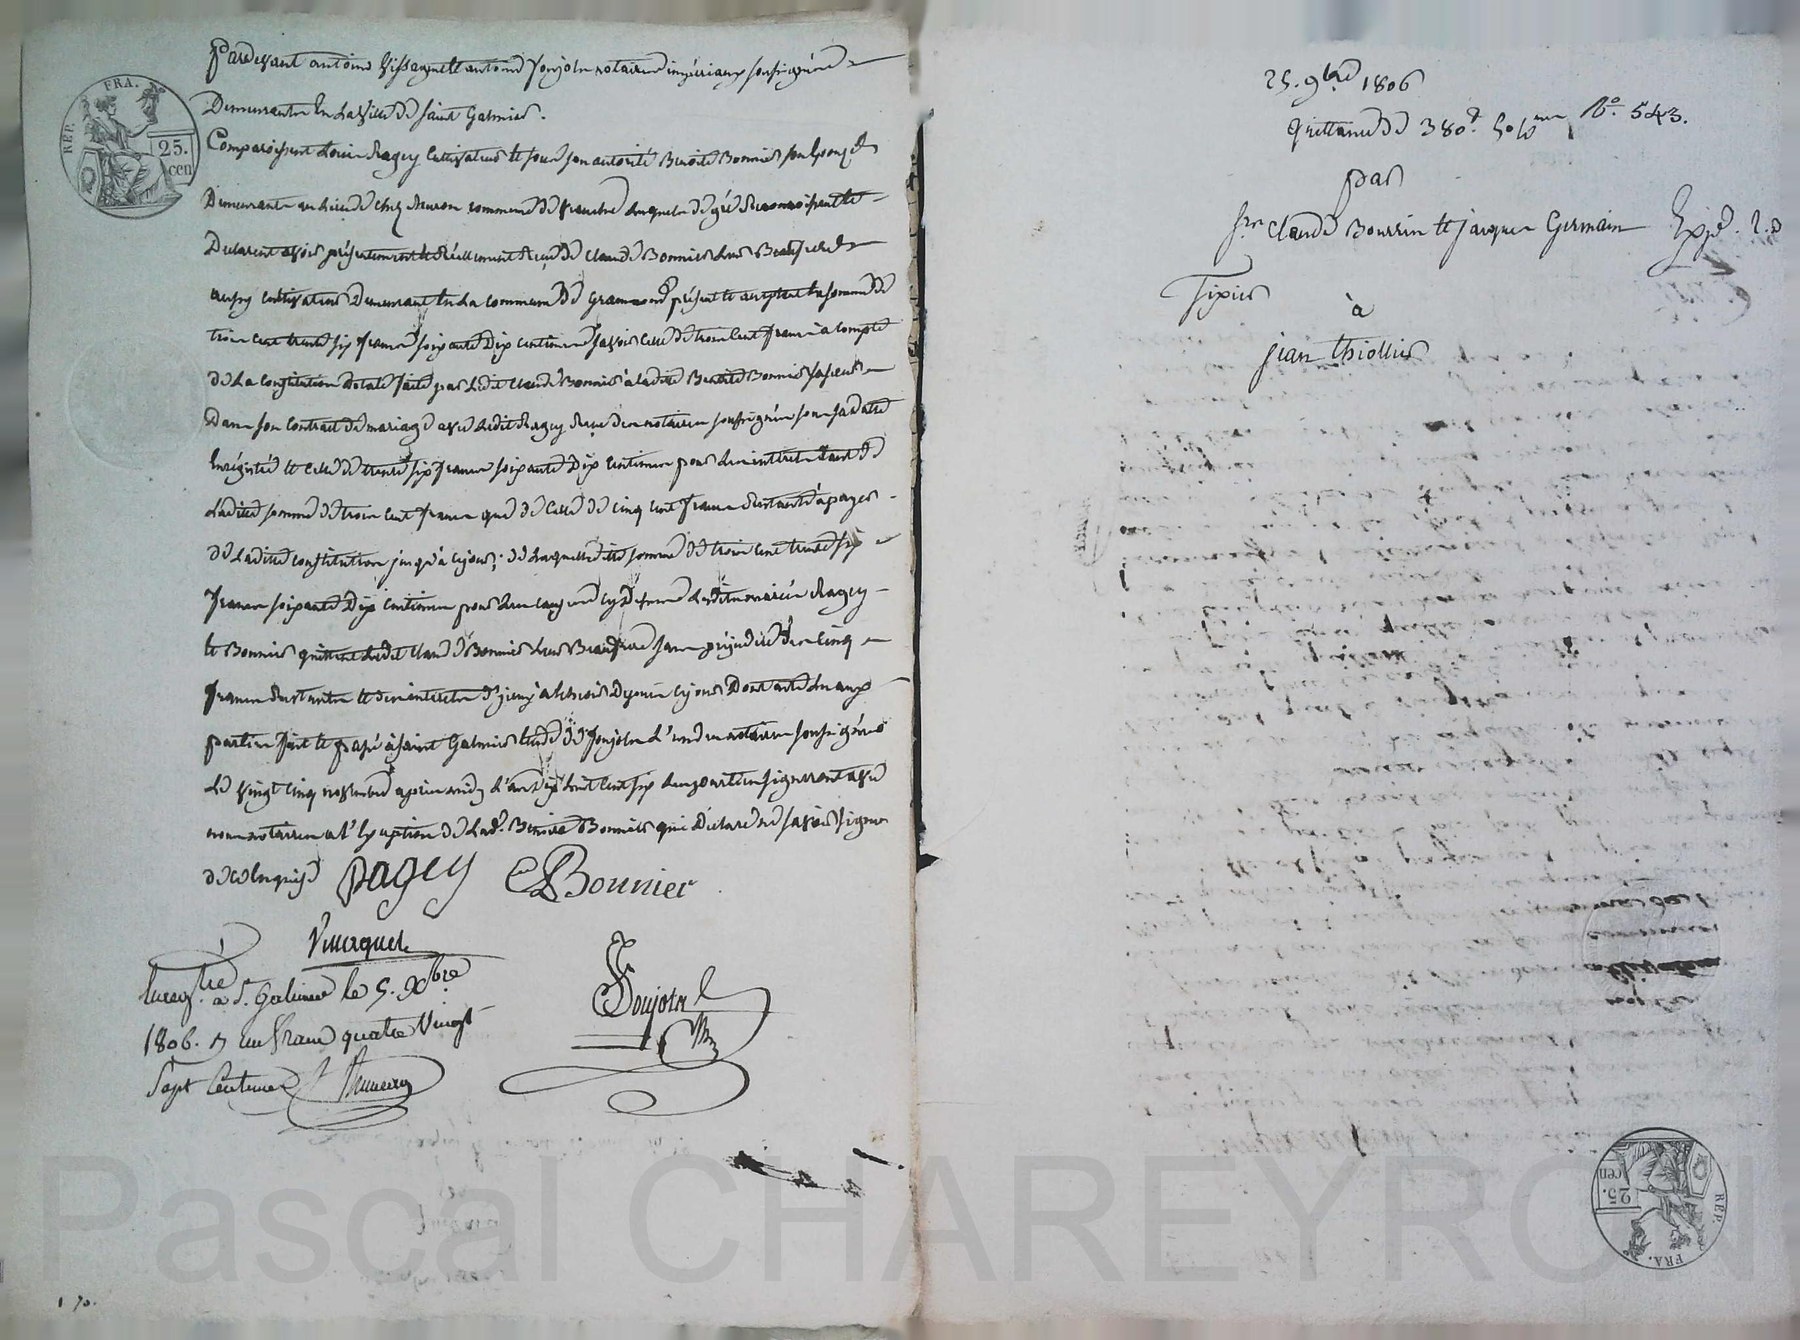 Pardevant antoine Vissaguet et antoine Ponjoln notaires impériaux soussignés
Demeurants En La Ville de saint Galmier.
Comparoissent Louis Ragey Cultivateur et sous son autorité Benoite Bonnier son Epouse
Demeurants au Lieu de chez commune de Lesquels de gré Reconnoissent et
Declarent avoir présentement et Réellement Reçu de Claude Bonnier Leur Beaufrere
aussy Cultivateur Demeurant En La Commune de Grammond présent et acceptant La somme de
trois cent trente six francs soixante Dix centimes savoir Celle de trois Cent francs a compte
de La Constitution dotale faite par Ledit Claude Bonnier à Ladite Benoite Bonnier sa soeur
Dans son Contrat de mariage avec Ledit Ragey Reçu des notaires soussignés sous sa date
Enrégistré et Celle de trente six francs soixante Dix Centimes pour Les intérêts tant de
Ladite somme de trois Cent francs que de Celle de Cinq Cent francs Restante à payer
de Ladite constitution jusqu'à Ce jour; de Laquelle dite somme de trois Cent trente six
francs soixante Dix Centimes pour Les Causes Cy Lesdits mariés Ragey
et Bonnier quittent Ledit Claude Bonnier Leur Beaufrere sans préjudice des Cinq
francs Restants et des intérêts D'iceux a Echeoir Depuis Ce jour Dont acte Lu aux
parties fait et passé à saint Galmier Etude de Ponjoln L'un des notaires soussignés
Le Vingt Cinq novembre après midy L'an dix huit Cent six Les parties signeront avec
nous notaires a l'Exception de Lad.e Benoite Bonnier qui a Déclaré ne savoir signer
de Ce Enquise Pagey C Bonnier
Vissaguet
Enregistré à St. Galmier le 5. Xbre
Ponjoln
1806. R un franc quatre Vingt
Sept Centimes
1 70.
25. 9bre 1806
Quittance de 380f. 50 cmes No. 543.
par
srs Claude Bourrin et Jacques Germain Expd. 2.
Tixier
à
jean thiollier
REP. FRA.
25.
cen
REP. FRA.
25.
cen
Pascal CHAREYRON